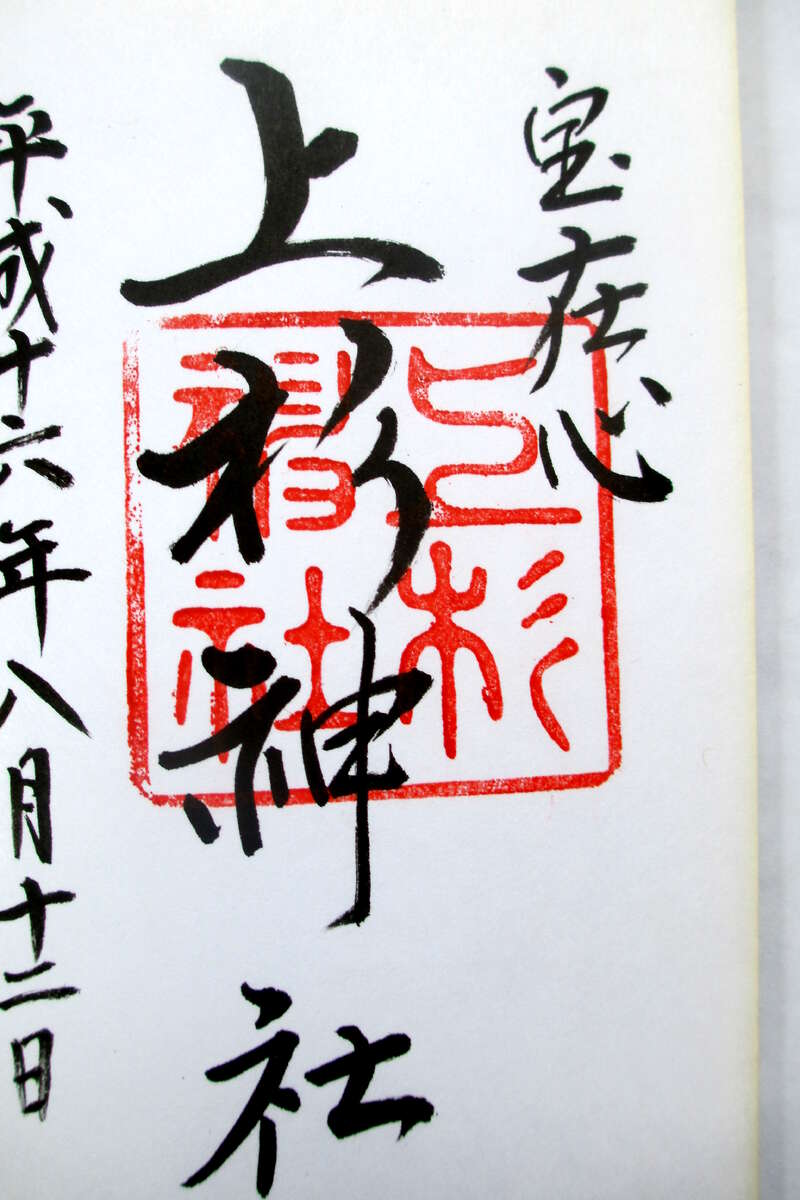 宝在心
上杉神社
上杉神社
平成十六年八月十二日